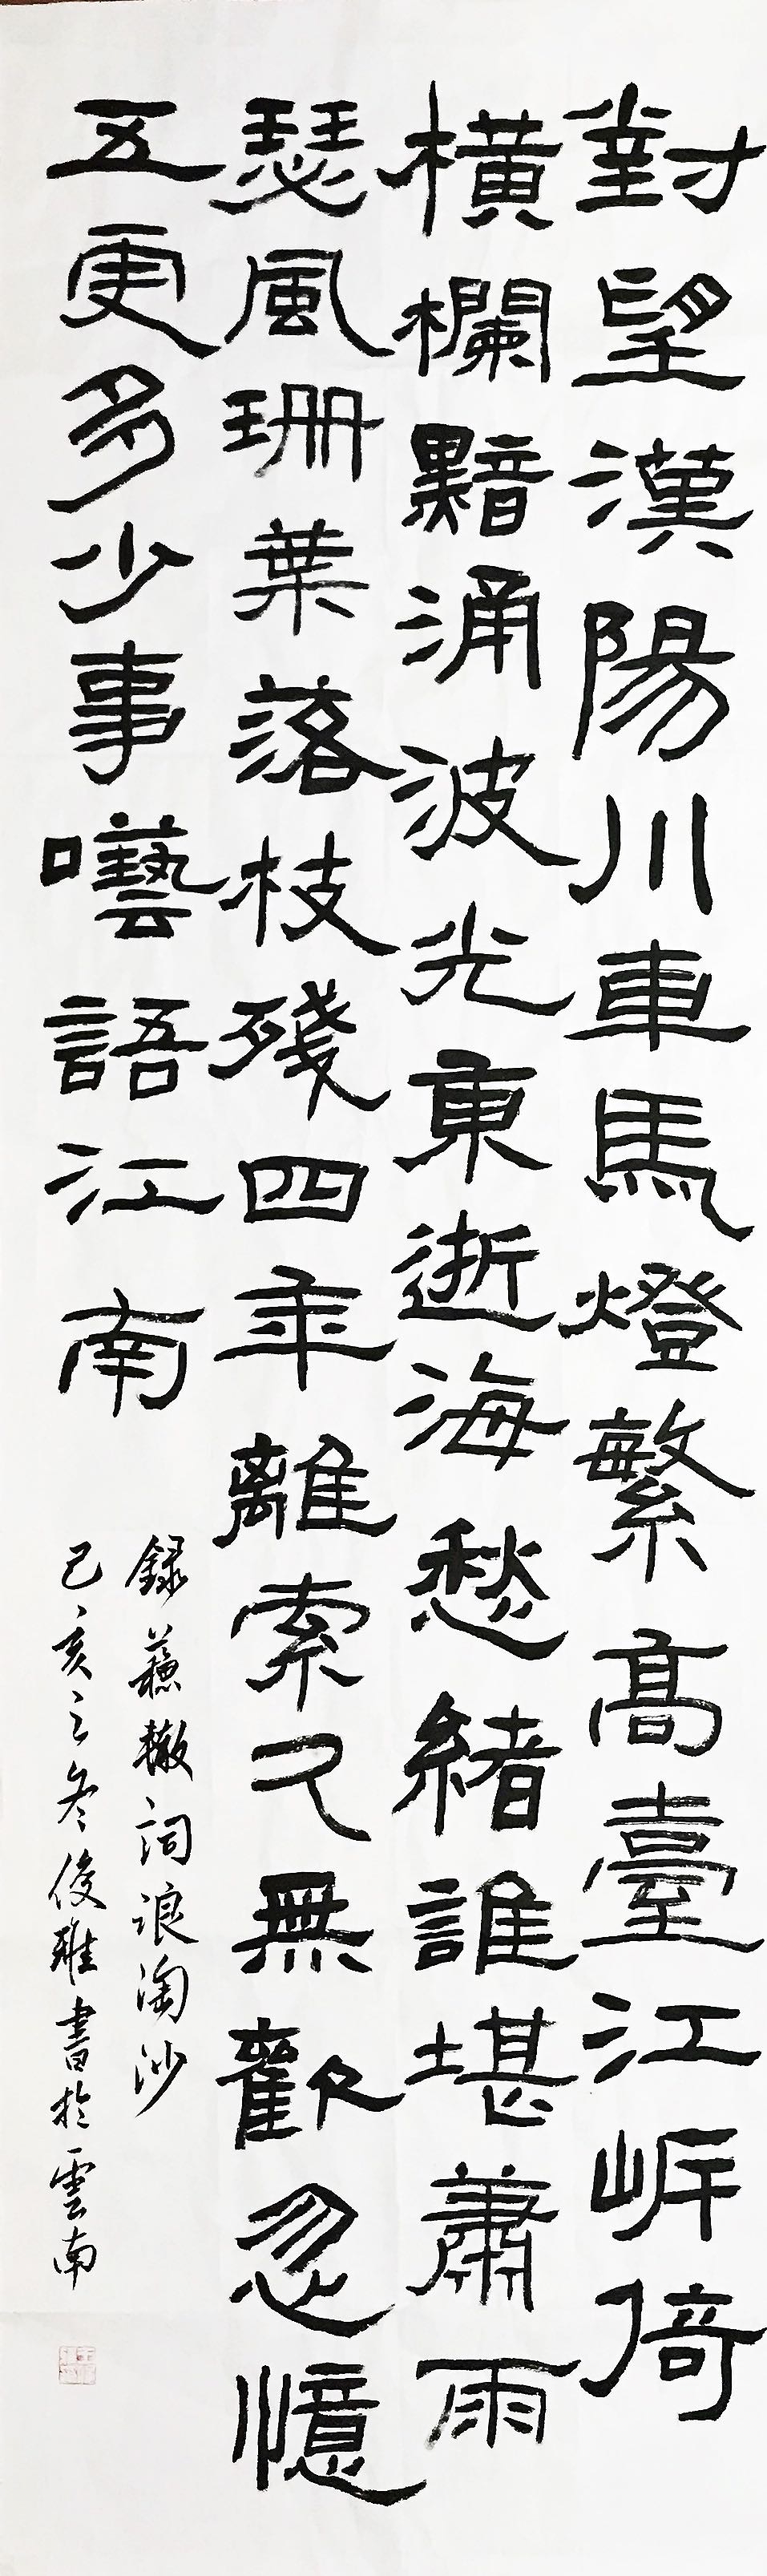 對望漢陽川車馬燈繁高臺江岸倚
橫欄黯涌波光東逝海愁緒誰堪蕭雨
瑟風珊葉落枝殘四年離索久無歡忽憶
五更多少事囈語江南
録蘇轍詞浪淘沙
己亥之冬俊雅書於雲南